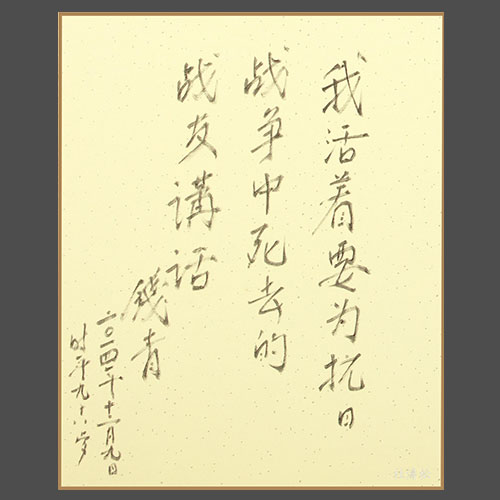 我活着要为抗日
战争中死去的
战友講话
錢青
二〇一四年十二月九日
时年九十六岁